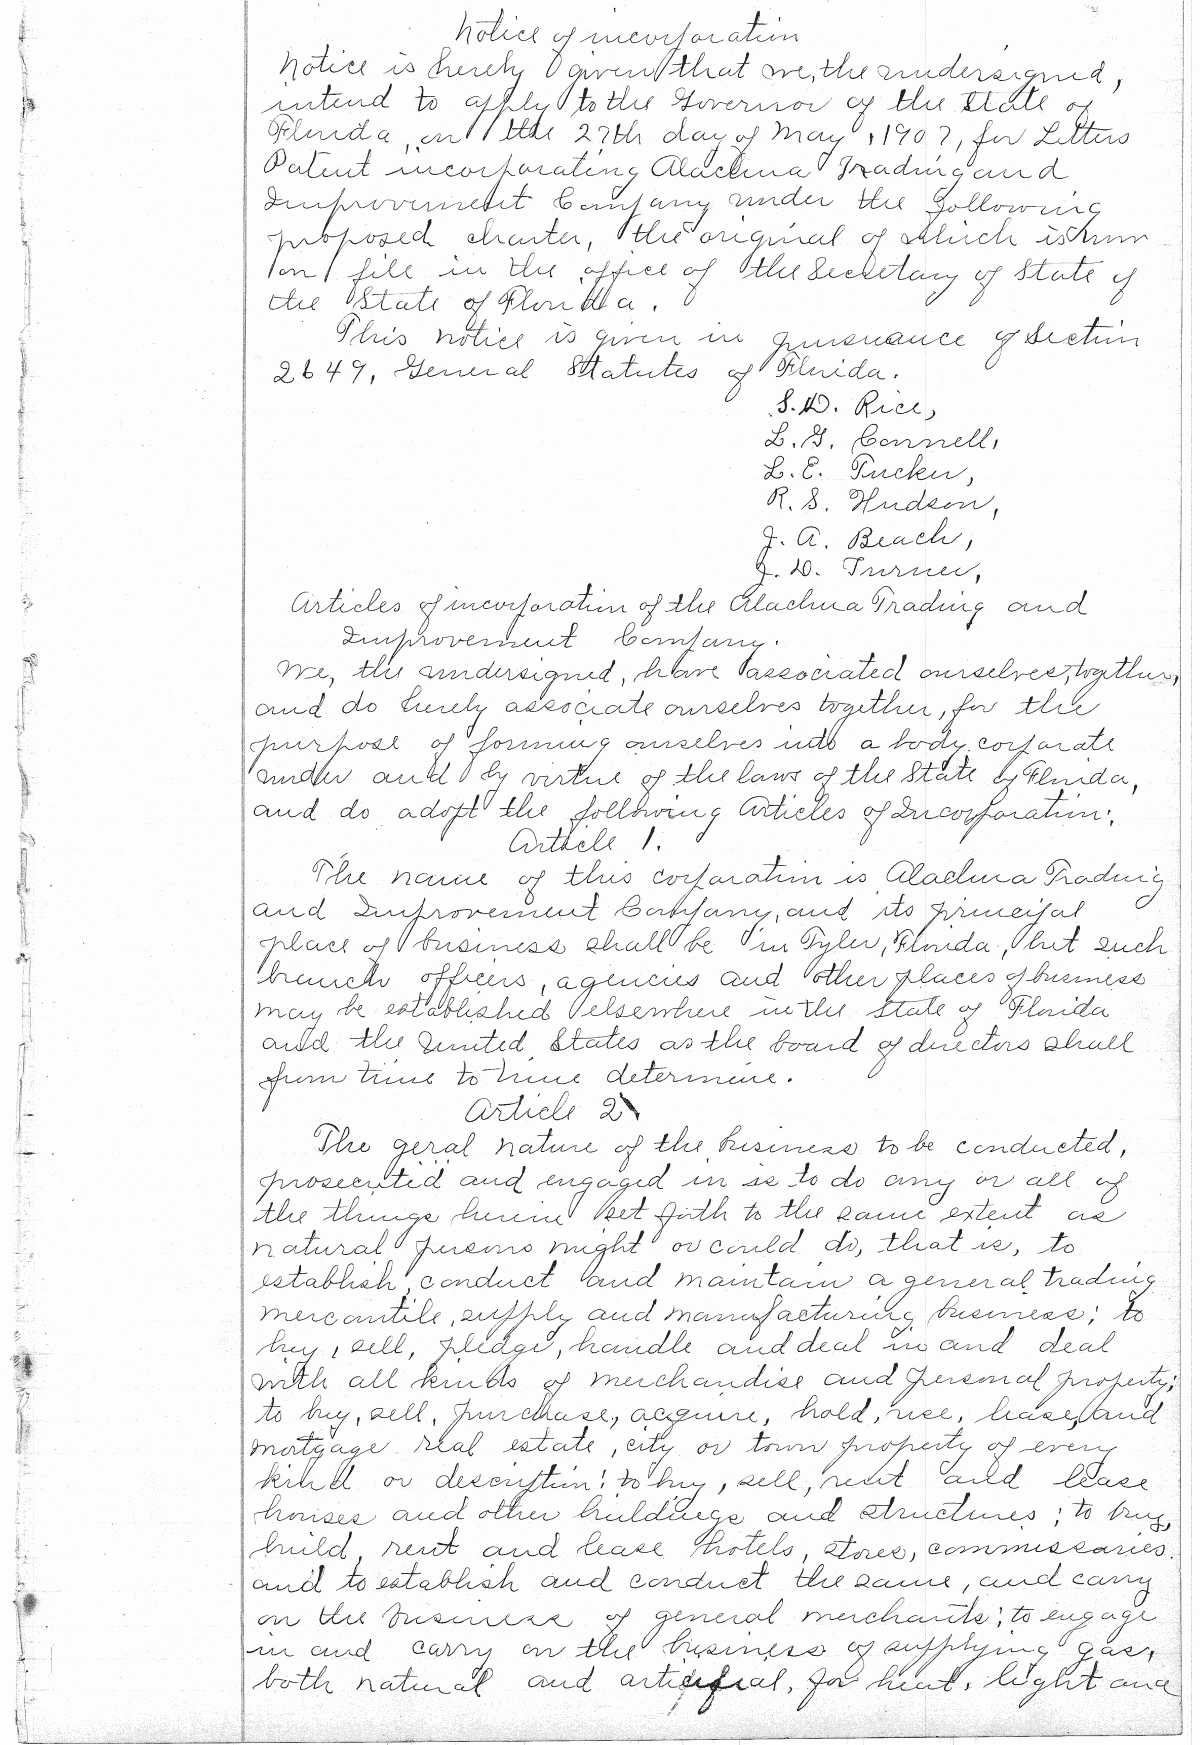 Notice of incorporation
Notice is hereby given that we, the undersigned,
intend to apply to the Governor of the State of
Florida, on the 27th day of May, 1907, for Letters
Patent incorporating Alachua Trading and
Improvement Company under the following
proposed charter, the original of which is now
on file in the office of the Secretary of State of
the State of Florida.
This notice is given in pursuance of Section
2649, General Statutes of Florida.
S. D. Rice,
L. G. Connell,
L. E. Tucker,
R. S. Hudson,
J. A. Beach,
J. D. Turner,
Articles of incorporation of the Alachua Trading and
Improvement Company.
We, the undersigned, have associated ourselves, together,
and do hereby associate ourselves together, for the
purpose of forming ourselves into a body corporate
under and by virtue of the laws of the State of Florida,
and do adopt the following Articles of Incorporation:
Article 1.
The name of this corporation is Alachua Trading
and Improvement Company, and its principal
place of business shall be in Tyler, Florida, but such
branch officers, agencies and other places of business
may be established elsewhere in the State of Florida
and the United States as the board of directors shall
from time to time determine.
Article 2
The geral nature of the business to be conducted,
prosecuted and engaged in is to do any or all of
the things herein set forth to the same extent as
natural persons might or could do, that is, to
establish, conduct and maintain a general trading
mercantile, supply and manufacturing business; to
buy, sell, pledge, handle and deal in and deal
with all kinds of merchandise and personal property;
to buy, sell, purchase, acquire, hold, use, lease, and
mortgage real estate, city or town property of every
kind or description; to buy, sell, rent and lease
houses and other buildings and structures; to buy,
build, rent and lease hotels, stores, commissaries
and to establish and conduct the same, and carry
on the business of general merchants; to engage
in and carry on the business of supplying gas,
both natural and artificial, for heat, light and